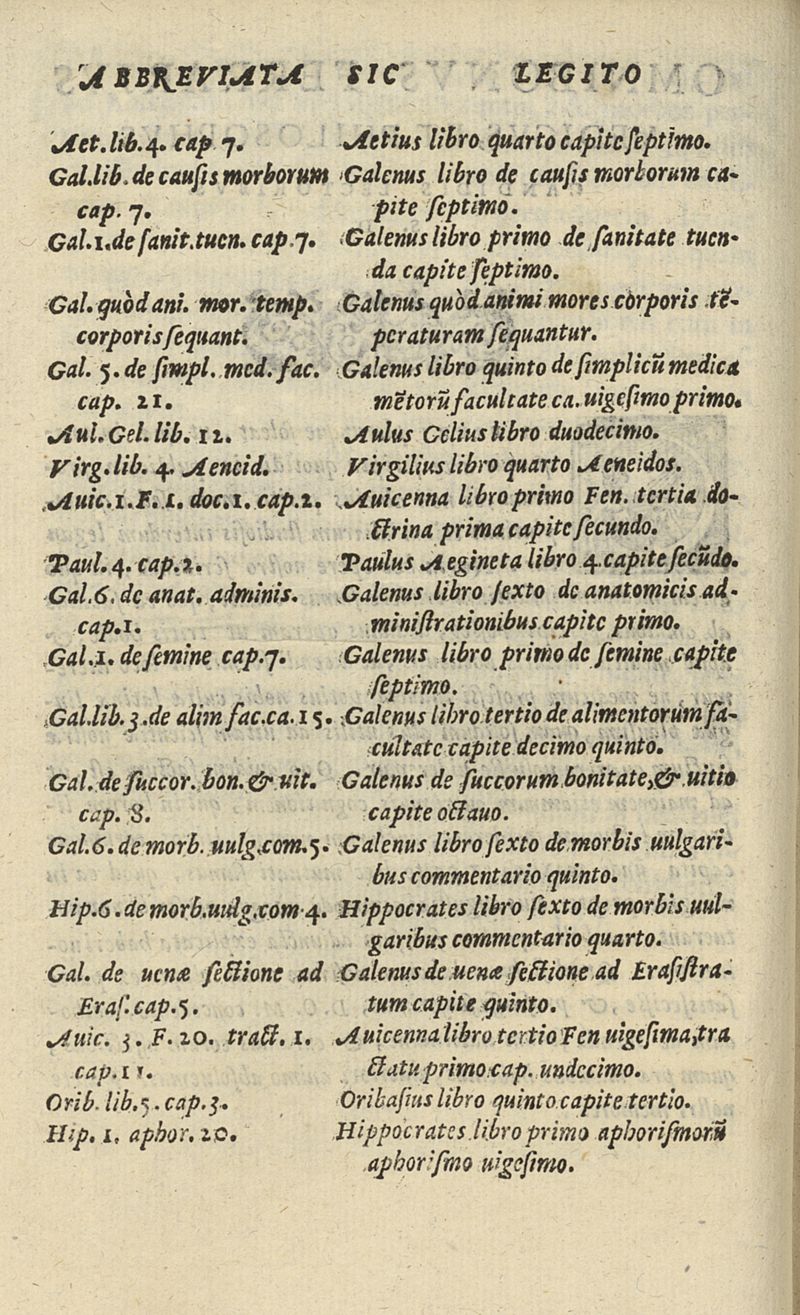 ABBREVIATA SIC LEGITO
Aet.lib.4. cap 7. Aetius libro quarto capite ſeptimo.
Gal.lib.de cauſis morborum Galenus libro de cauſis morborum ca-
cap. 7. pite ſeptimo.
Gal.1.de ſanit.tuen. cap.7. Galenus libro primo de ſanitate tuen-
da capite ſeptimo.
Gal. quòd ani. mor. temp. Galenus quòd animi mores corporis tẽ-
corporis ſequant. peraturam ſequantur.
Gal. 5. de ſimpl. med. fac. Galenus libro quinto de ſimplicũ medica
cap. 21. mẽtorũ facultate ca. uigeſimo primo.
Aul. Gel. lib. 12. Aulus Gelius libro duodecimo.
Virg. lib. 4. Aeneid. Virgilius libro quarto Aeneidos.
Auic.1.F.1. doc.1. cap.2. Auicenna libro primo Fen. tertia do-
ctrina prima capite ſecundo.
Paul. 4. cap.2. Paulus Aegineta libro 4.capite ſecũdo.
Gal.6. de anat. adminis. Galenus libro ſexto de anatomicis ad-
cap.1. miniſtrationibus capite primo.
Gal.1. de ſemine cap.7. Galenus libro primo de ſemine capite
ſeptimo.
Gal.lib.3.de alim fac.ca.15. Galenus libro tertio de alimentorum fa-
cultate capite decimo quinto.
Gal. de ſuccor. bon. & uit. Galenus de ſuccorum bonitate,& uitio
cap. 8. capite octauo.
Gal.6. de morb. uulg.com.5. Galenus libro ſexto de morbis uulgari-
bus commentario quinto.
Hip.6.de morb.uulg.com 4. Hippocrates libro ſexto de morbis uul-
garibus commentario quarto.
Gal. de uenæ ſectione ad Galenus de uenæ ſectione ad Eraſiſtra-
Eraſ.cap.5. tum capite quinto.
Auic. 3. F. 20. tract. 1. Auicenna libro tertio Fen uigeſima,tra
cap.11. ctatu primo cap. undecimo.
Orib. lib.5. cap.3. Oribaſius libro quinto capite tertio.
Hip. 1. aphor. 20. Hippocrates libro primo aphoriſmorũ
aphoriſmo uigeſimo.